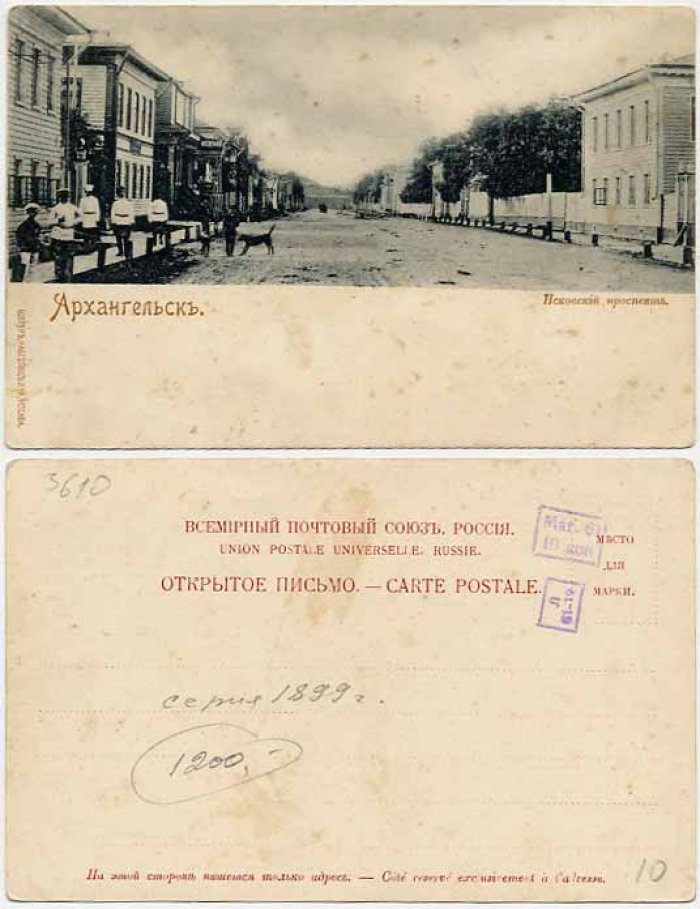 Архангельскъ.
Псковскій проспектъ.
3610
ВСЕМІРНЫЙ ПОЧТОВЫЙ СОЮЗЪ. РОССІЯ.
UNION POSTALE UNIVERSELLE. RUSSIE.
ОТКРЫТОЕ ПИСЬМО. — CARTE POSTALE.
МѢСТО
ДЛЯ
МАРКИ.
Маг.
10 коп
серия 1899 г.
1200,-
На этой сторонѣ пишется только адресъ. — Côté reservé exclusivement à l'adresse.
10